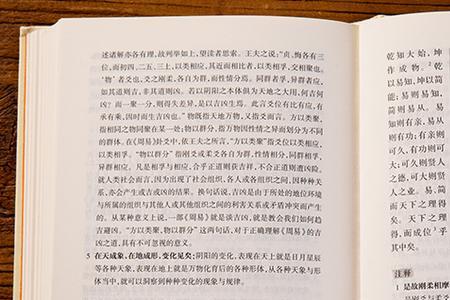 述诸解亦各有理,故列举如上,望读者思索。王夫之说:“贞、悔各有三
位,而初四、二五、三上,以类相应,其近而相比者,以类相孚,交相聚也。
‘物’者爻也,爻之刚柔,各自为群,而性情分焉。同群者孚,异群者应,
如其道则吉,非其道则凶。若以阴阳之本体俱为天地之大用,何吉何
凶?而一聚一分,则得失差异,是以吉凶生焉。此言爻位有比有应,有
承有乘,因时而生吉凶也。”物既指天地万物,又指爻而言。方以类聚,
指相同之物同聚在某一处;物以群分,指万物因性情之异而划分为不同
的群体。在《周易》卦爻中,依王夫之所言,“方以类聚”指爻位以类相应,
以类相孚。“物以群分”指刚爻或柔爻各自为群,性情相分,同群相孚,
异群相应。凡是相孚与相应,合乎正道则获吉祥,不合正道则遭凶险。
就人类社会而言,因为出现了社会组织、各人或各组织之间,因种种关
系,亦会产生或吉或凶的结果。换句话说,吉凶是由于所处的地位环境
与所属的组织与其他人或其他组织之间的利害关系或矛盾冲突而产生
的。从某种意义上说,一部《周易》就是谈吉凶,就是教会我们如何趋
吉避凶。“方以类聚,物以群分”这两句话,对于正确理解《周易》的吉
凶之道,具有不可忽视的意义。
5 在天成象,在地成形,变化见矣:阴阳的变化,表现在天上就是日月星辰
等各种天象,表现在地上就是万物化育后的各种形体,从各种天象与形
体当中,就可以洞察到种种变化的现象与规律。
乾知大始,坤
作成物。2
以易知,坤以简
能;易则易知,
简则易从。易
从则有功;有亲则
可久,有功则可
大;可久则贤人
之德,可大则贤
人之业。易、简
而天下之理得
矣。天下之理
得,而成位乎
其中矣。
注释
1 是故刚柔相摩